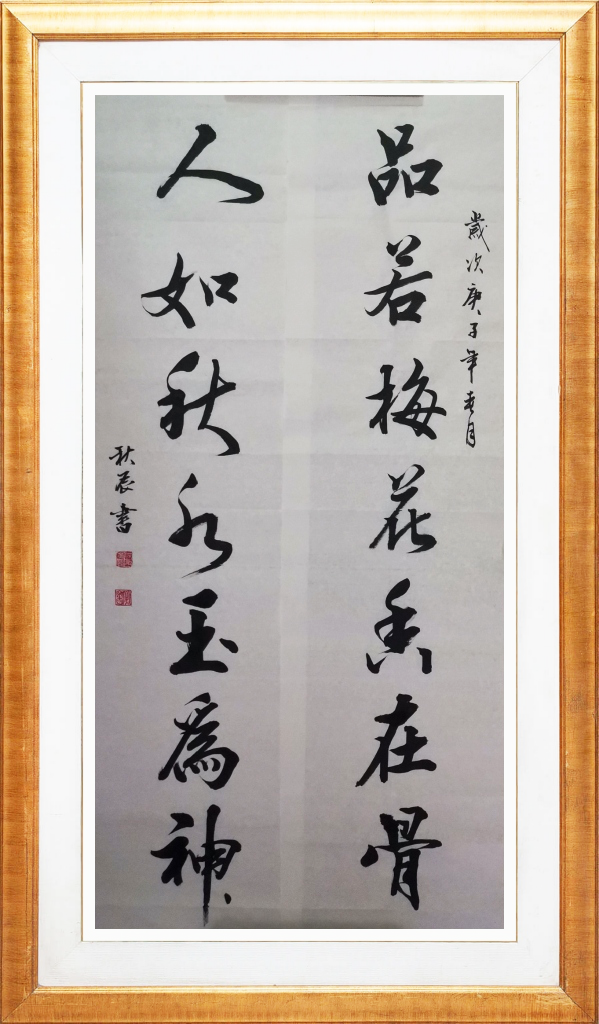 歲次庚子年春月
品若梅花香在骨
人如秋水玉爲神
秋辰書